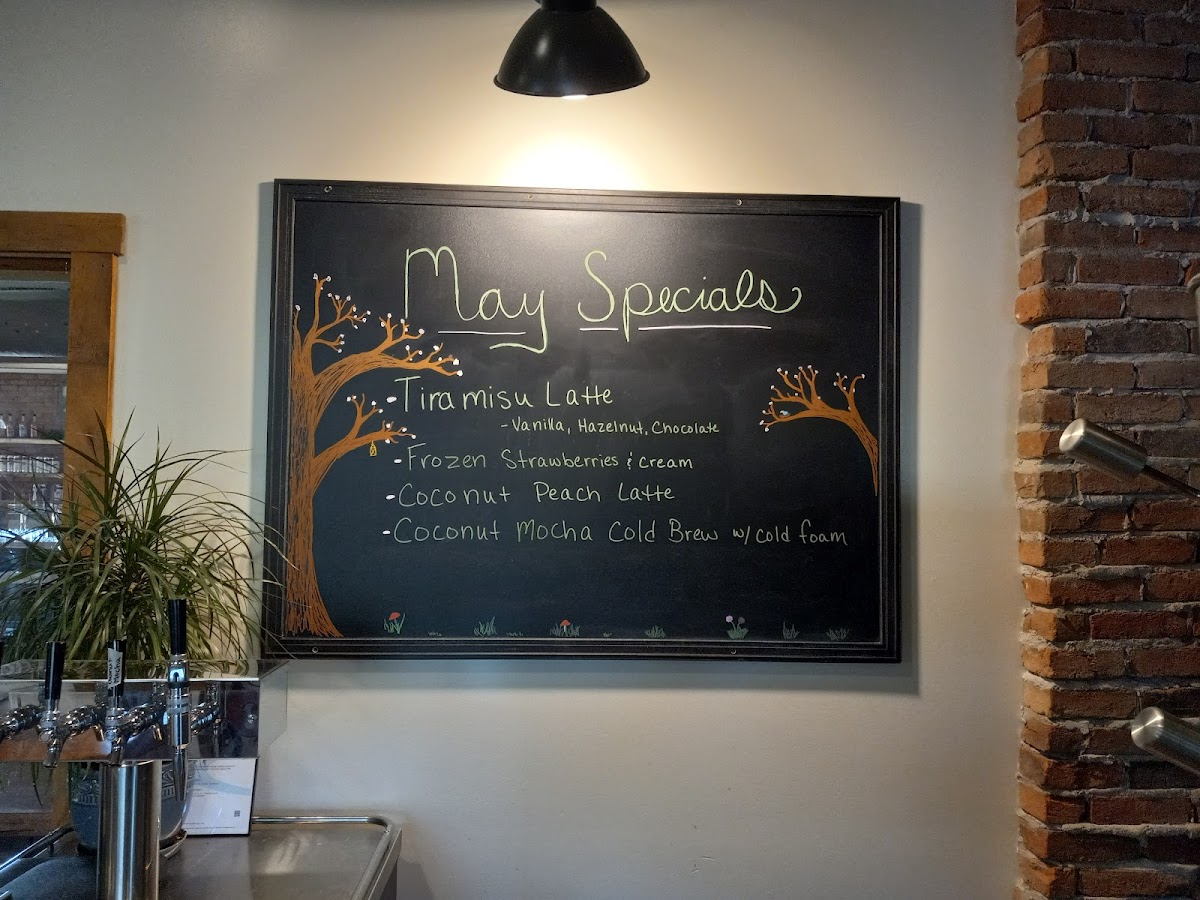 May Specials
-Tiramisu Latte
-Vanilla, Hazelnut, Chocolate
-Frozen Strawberries & Cream
-Coconut Peach Latte
-Coconut Mocha Cold Brew w/ cold foam